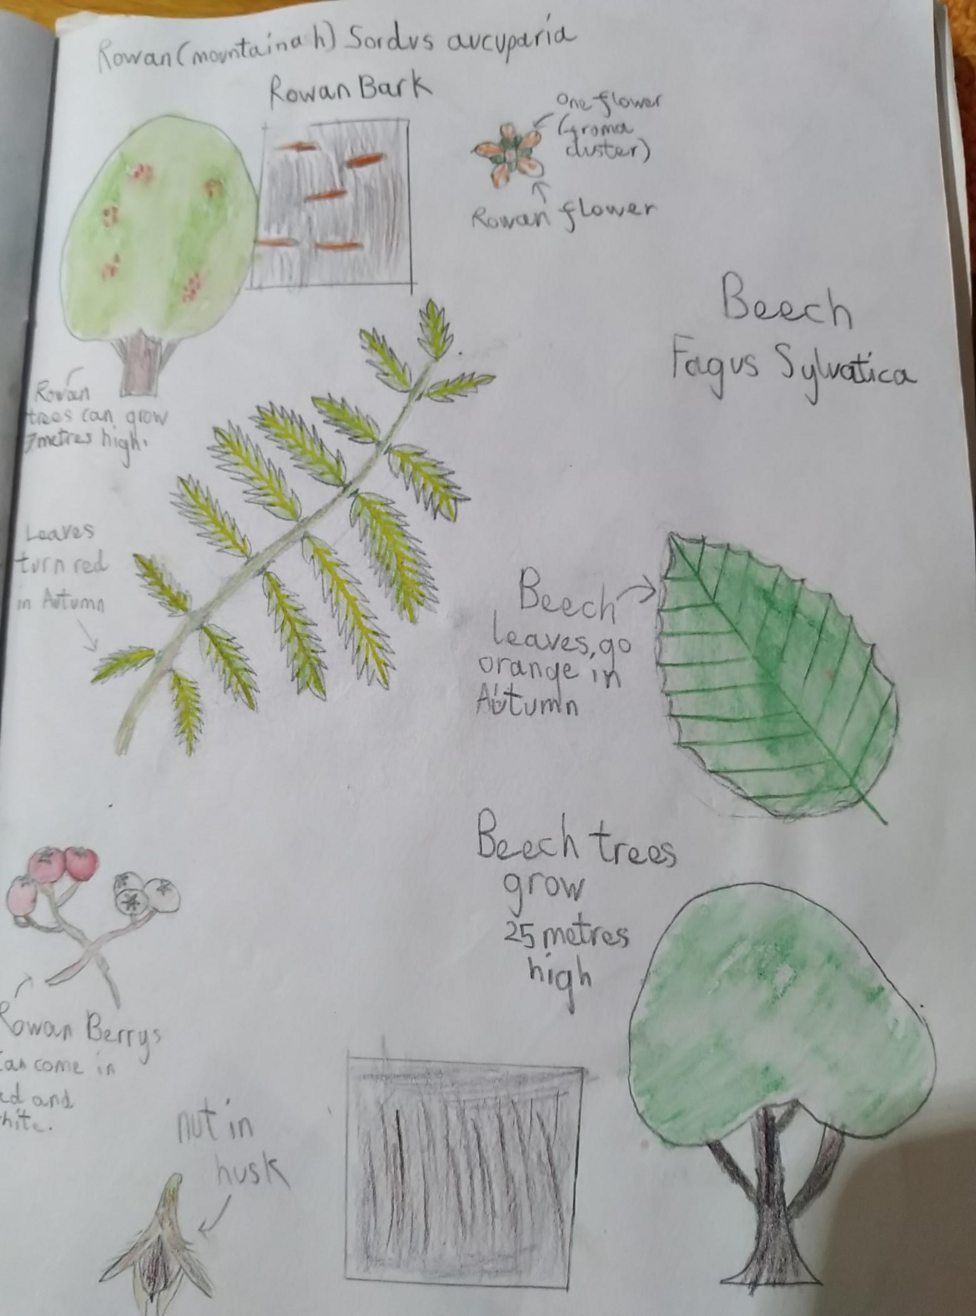 Rowan (mountain a h) Sordus aucuparia
Rowan Bark
One flower
(from a
cluster)
Rowan flower
Beech
Fagus Sylvatica
Rowan
trees can grow
7 metres high.
Leaves
turn red
in Autumn
Beech
leaves, go
orange in
Autumn
Beech trees
grow
25 metres
high
Rowan Berrys
can come in
red and
white.
nut in
husk